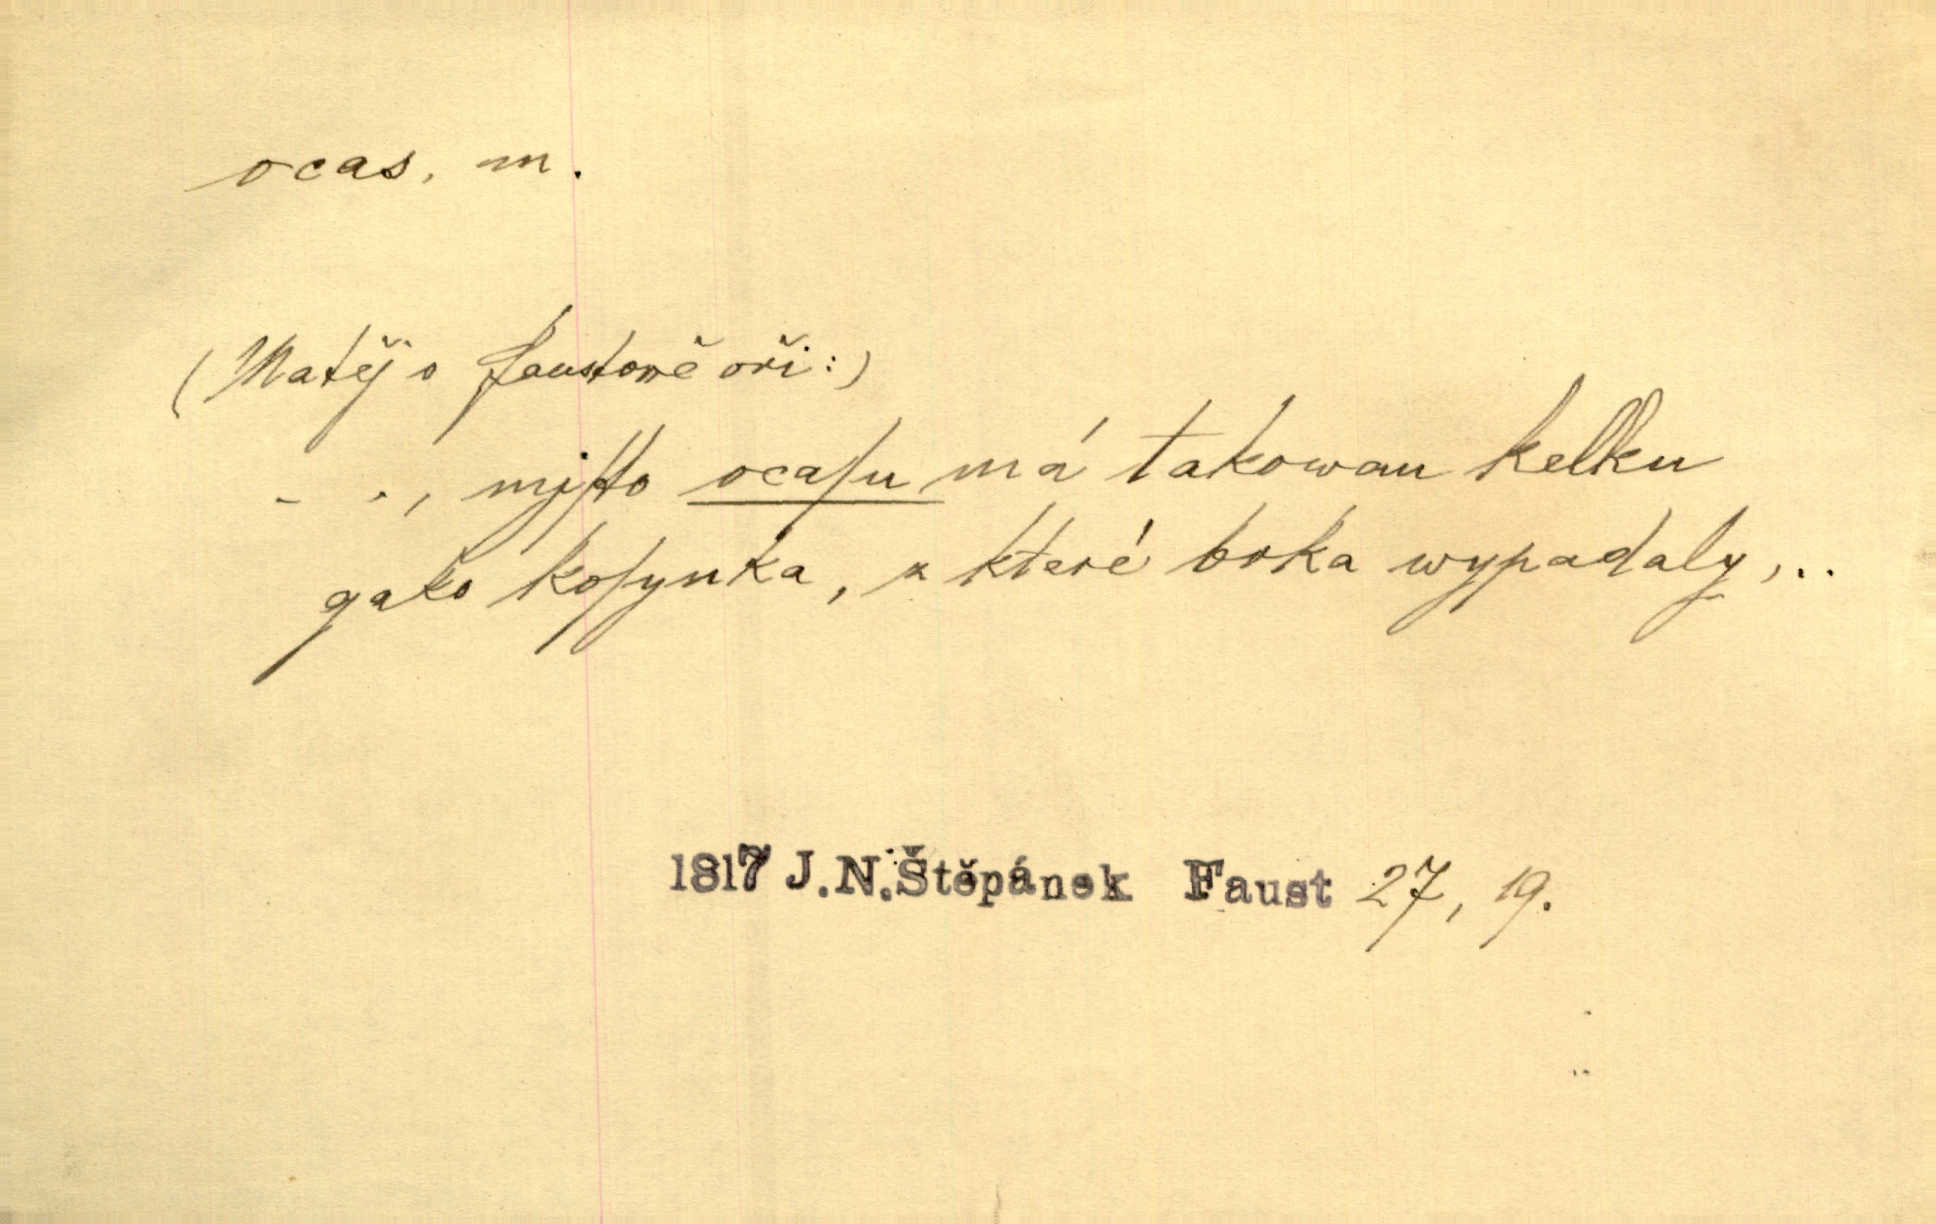 ocas, m.
(Matěj o Faustově oři:)
- . , mjſto ocaſu má takowau kelku
gako koſynka, z které boka wypadaly, . .
1817 J.N.Štěpánek Faust 27, 19.